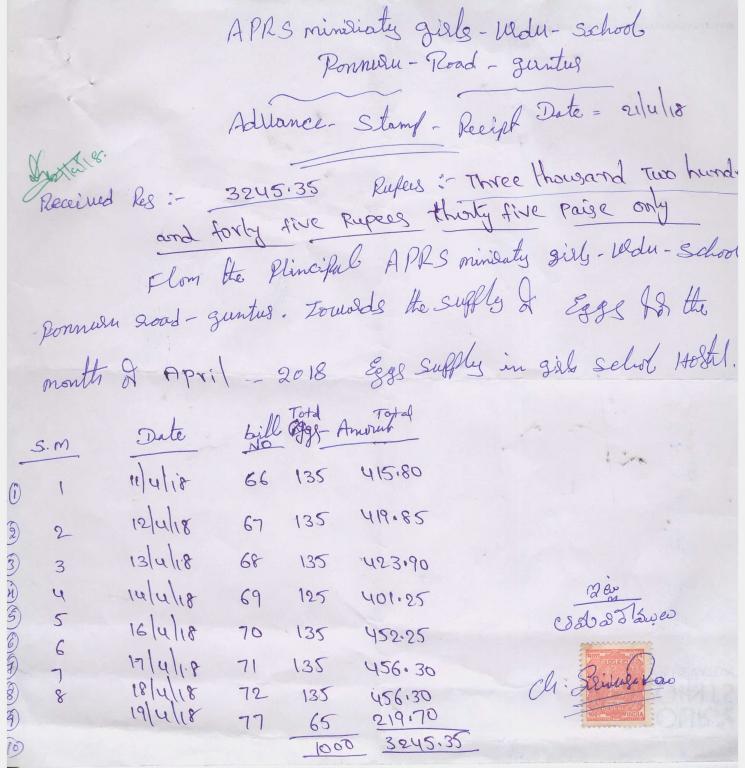 APRS miniriaty girls - Urdu - School
Ponnuru - Road - guntur
Advance - Stamp - Recipt Date = 21/4/18
Received Res :- 3245.35 Rupees :- Three thousand Two hund
and forty five Rupees thirty five paise only
From the Principal APRS miniriaty girls - Urdu - School
Ponnuru road - guntur. Towards the supply of Eggs for the
month of April - 2018 Eggs supply in girls school Hostel.
S.M Date bill NO Total Eggs Total Amount
① 1 11/4/18 66 135 415.80
② 2 12/4/18 67 135 419.85
③ 3 13/4/18 68 135 423.90
④ 4 14/4/18 69 125 401.25
⑤ 5 16/4/18 70 135 452.25
⑥ 6 17/4/18 71 135 456.30
⑦ 7 18/4/18 72 135 456.30
⑧ 8 19/4/18 77 65 219.70
⑨
⑩ 1000 3245.35
ఇట్లు
Ch. Srinivasa Rao
INDIA